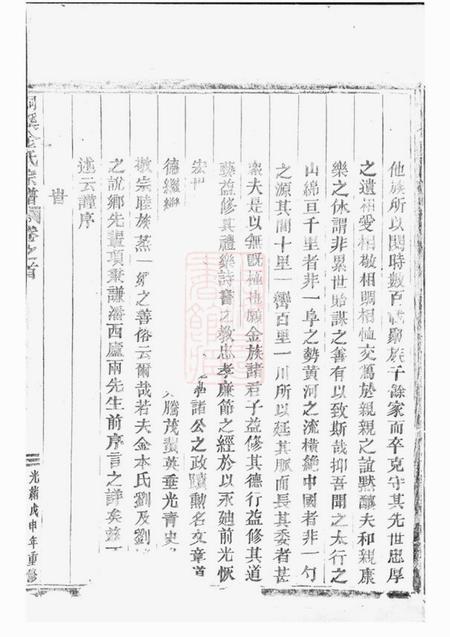 他族所以閱時數百禩勵族子餘家而卒克守其先世忠厚
之遺相愛相敬相賙相恤交篤於親親之誼黙釀夫和親康
樂之休謂非累世貽謀之善有以致斯哉抑吾聞之太行之
山綿亘千里者非一阜之勢黃河之流橫絶中國者非一勺
之源其間十里一巒百里一川所以延其脈而長其委者甚
衆夫是以無旣極也願金族諸君子益修其德行益修其道
藝益修其禮樂詩書之敎忠孝廉節之經於以承廸前光恢
宏 諸公之政蹟勲名文章道
德繼繼 騰茂蜚英垂光青史
敬宗睦族蒸一鄉之善俗云爾哉若夫金本氏劉及劉
之說鄉先輩項秉謙潘西廬兩先生前序言之詳矣茲不
述云謹序
桐溪金氏宗譜 卷之首
廿
光緖戊申年重修